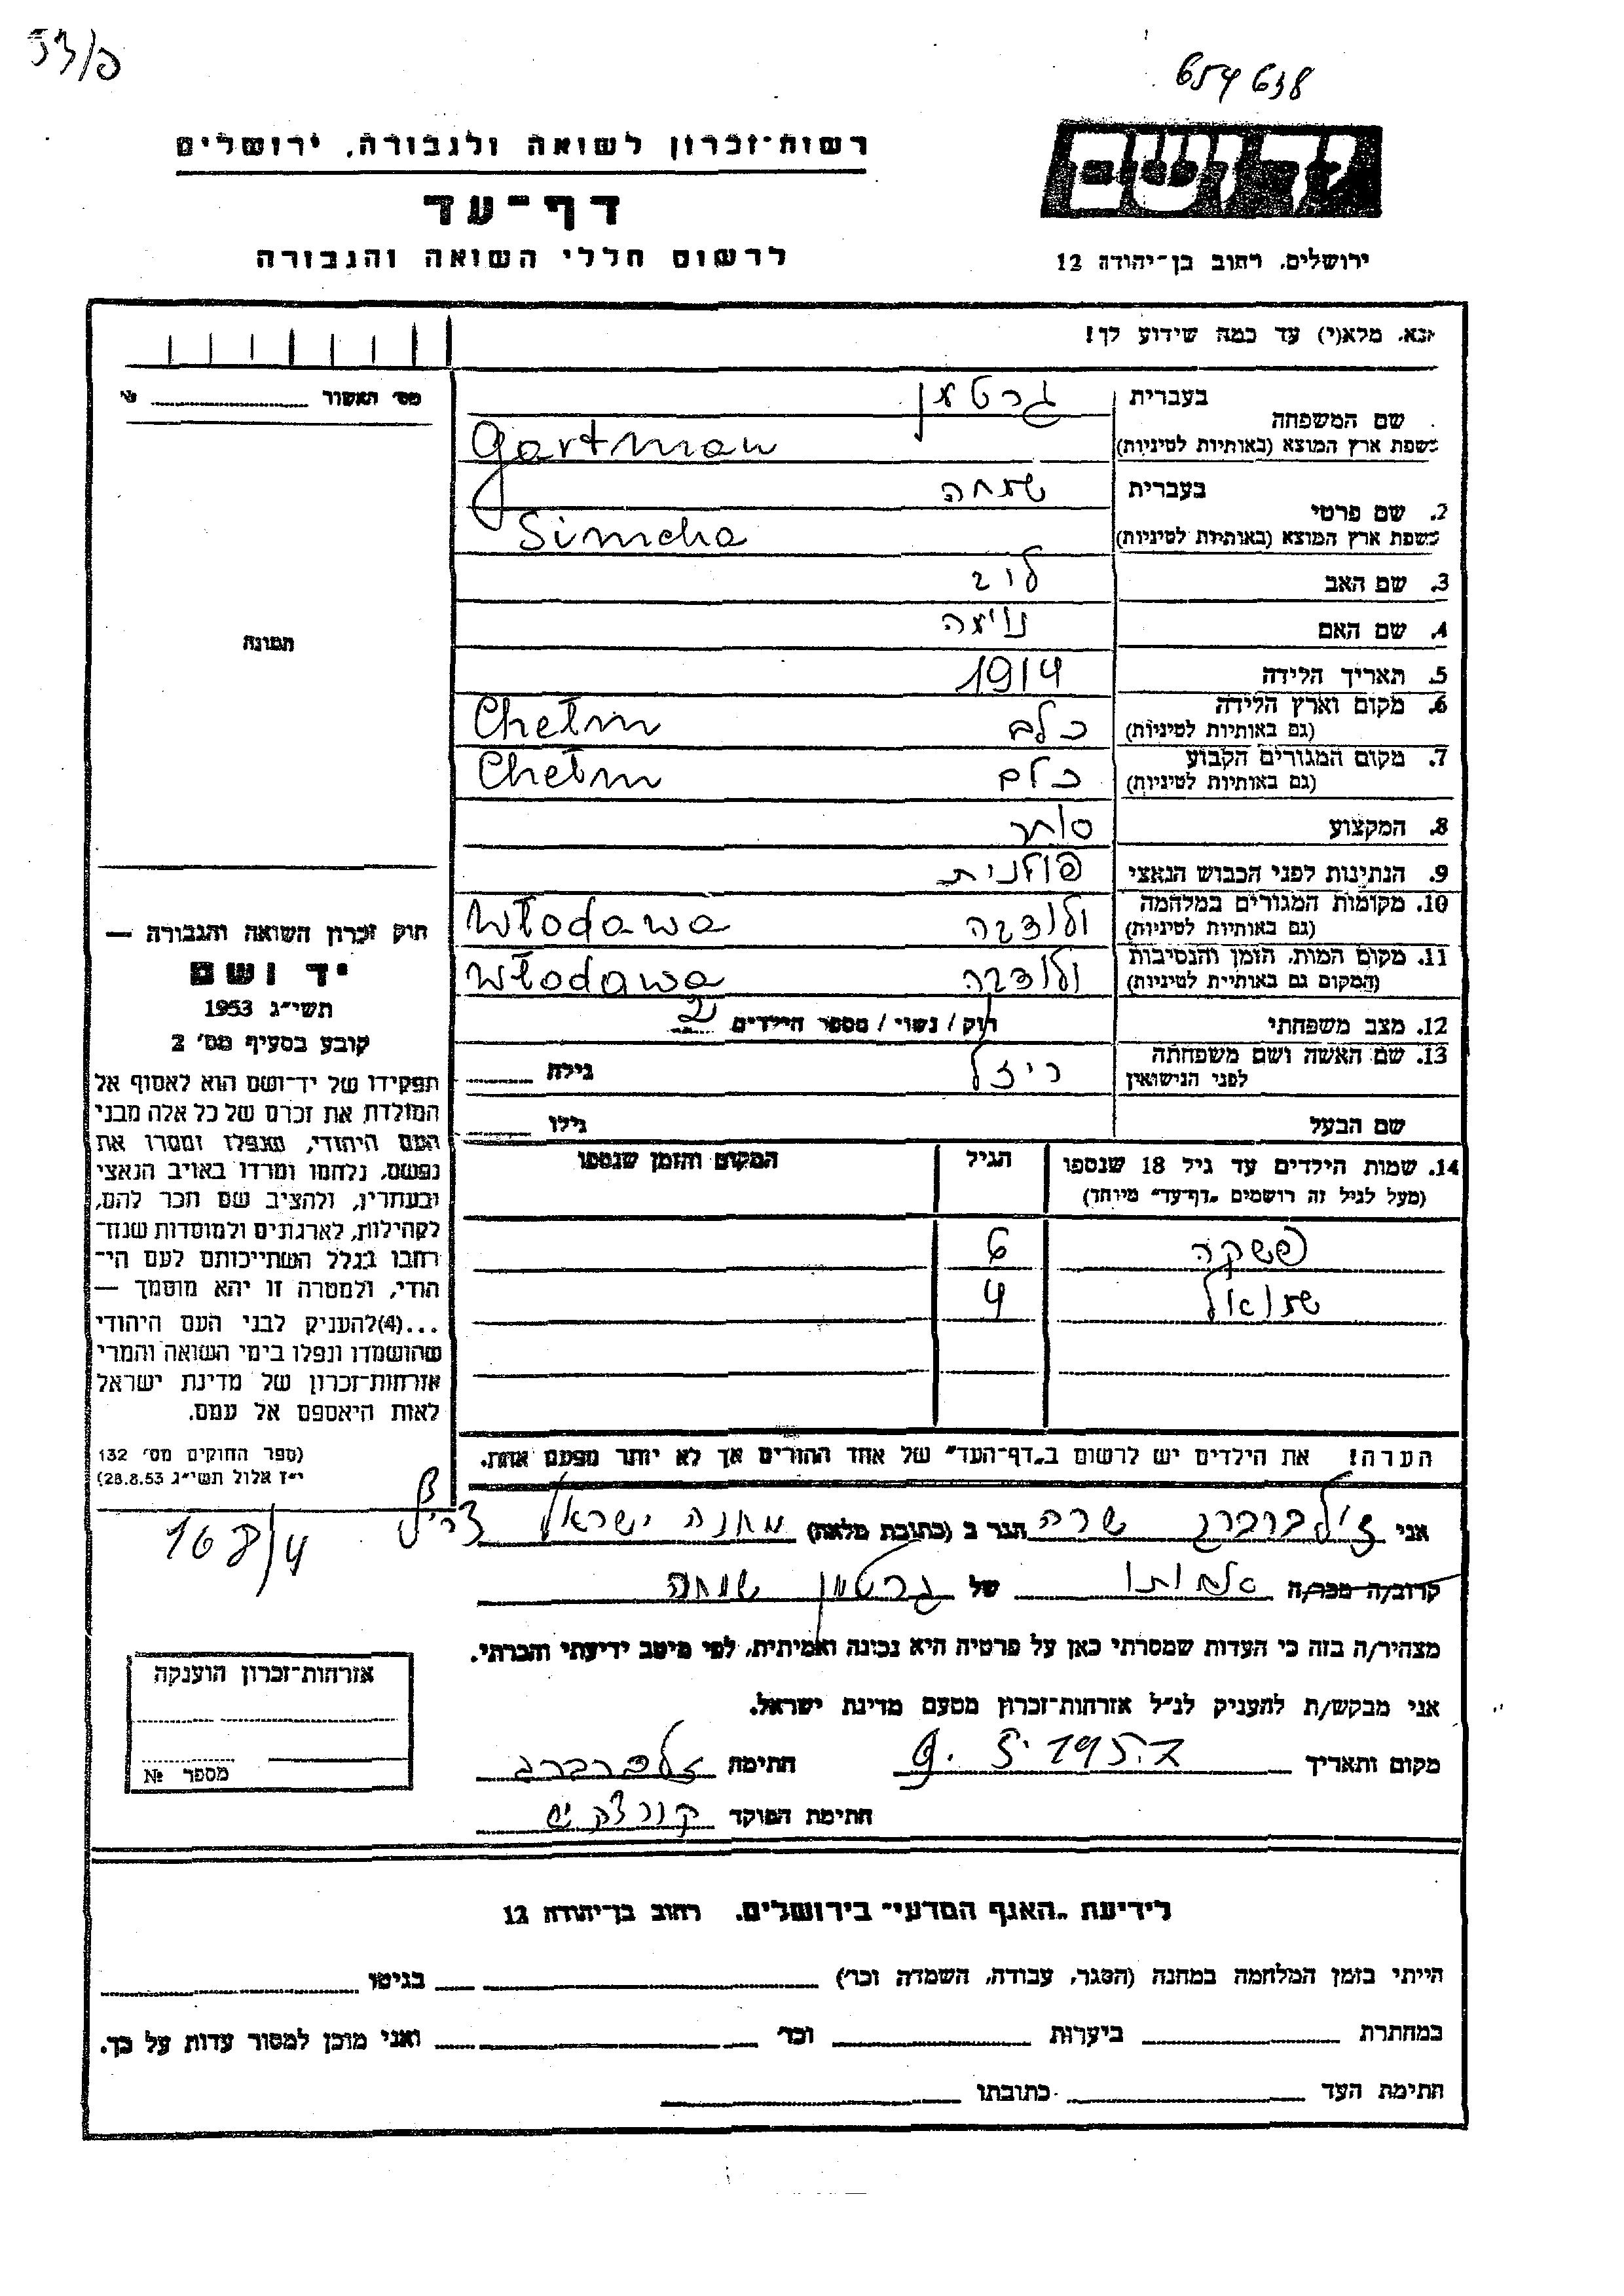 53/פ
654638
רשות־זכרון לשואה ולגבורה, ירושלים
יד ושם
דף־עד
לרשום חללי השואה והגבורה
ירושלים, רחוב בן־יהודה 12
נא, מלא(י) עד כמה שידוע לך!
מס׳ האשור №
שם המשפחה
בעברית גרטמן
בשפת ארץ המוצא (באותיות לטיניות) Gartman
2. שם פרטי
בעברית שמחה
בשפת ארץ המוצא (באותיות לטיניות) Simcha
3. שם האב
4. שם האם
5. תאריך הלידה 1914
6. מקום וארץ הלידה
(גם באותיות לטיניות) כלם Chełm
7. מקום המגורים הקבוע
(גם באותיות לטיניות) כלם Chełm
8. המקצוע סוחר
9. הנתינות לפני הכבוש הנאצי פולנית
10. מקומות המגורים במלחמה
(גם באותיות לטיניות) ולודבה Włodawa
11. מקום המות, הזמן והנסיבות
(המקום גם באותיות לטיניות) ולודבה Włodawa
12. מצב משפחתי רוק / נשוי / מספר הילדים 2
13. שם האשה ושם משפחתה
לפני הנישואין ריזל גילה
שם הבעל גילו
14. שמות הילדים עד גיל 18 שנספו הגיל המקום והזמן שנספו
(מעל לגיל זה רושמים „דף־עד״ מיוחד)
פסקה 6
שמואל 4
הערה! את הילדים יש לרשום ב„דף־העד״ של אחד ההורים אך לא יותר מפעם אחת.
תמונה
חוק זכרון השואה והגבורה —
יד ושם
תשי״ג 1953
קובע בסעיף מס׳ 2
תפקידו של יד־ושם הוא לאסוף אל
המולדת את זכרם של כל אלה מבני
העם היהודי, שנפלו ומסרו את
נפשם, נלחמו ומרדו באויב הנאצי
ובעוזריו, ולהציב שם וזכר להם,
לקהילות, לארגונים ולמוסדות שנח־
רבו בגלל השתייכותם לעם הי־
הודי, ולמטרה זו יהא מוסמך —
...(4)להעניק לבני העם היהודי
שהושמדו ונפלו בימי השואה והמרי
אזרחות־זכרון של מדינת ישראל
לאות היאספם אל עמם.
(ספר החוקים מס׳ 132
י״ז אלול תשי״ג 28.8.53)
168/4
אני זילברברג שרה הגר ב (כתובת מלאה) מחנה ישראל
קרוב/ה מכר/ה אחותו של גרטמן שמחה
מצהיר/ה בזה כי העדות שמסרתי כאן על פרטיה היא נכונה ואמיתית, לפי מיטב ידיעתי והכרתי.
אני מבקש/ת להעניק לנ״ל אזרחות־זכרון מטעם מדינת ישראל.
מקום ותאריך חתימה זלברברג
חתימת הפוקד
אזרחות־זכרון הוענקה
מספר №
לידיעת „האגף המדעי״ בירושלים, רחוב בן־יהודה 12
הייתי בזמן המלחמה במחנה (הסגר, עבודה, השמדה וכו׳) בגיטו
במחתרת ביערות וכו׳ ואני מוכן למסור עדות על כך.
חתימת העד כתובתו